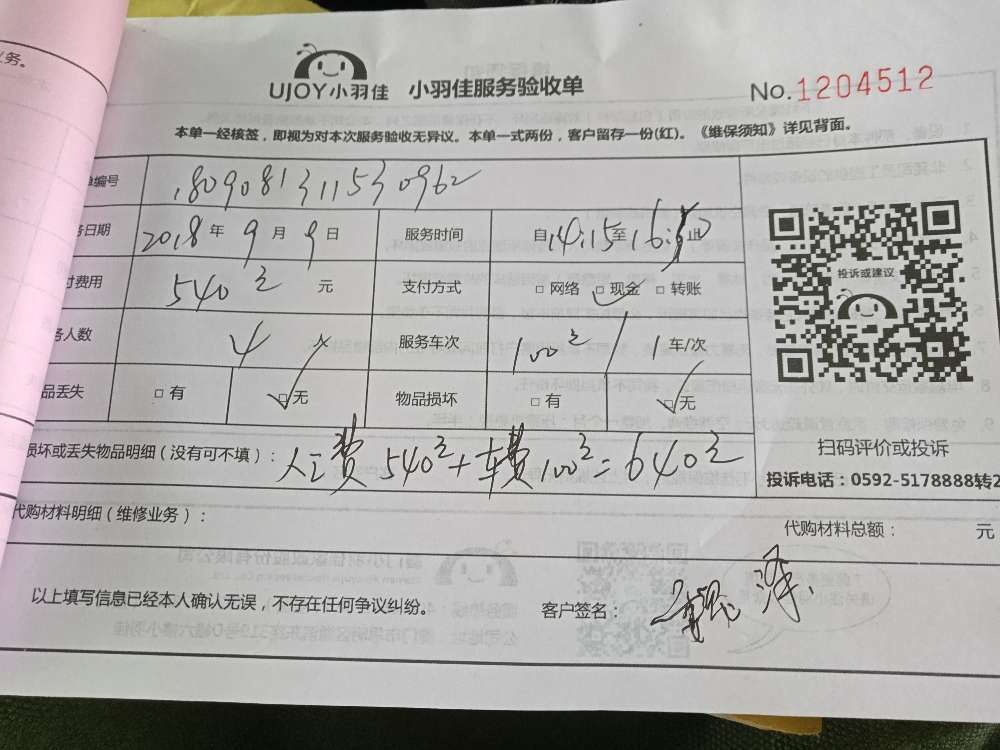 义务。
UJOY小羽佳 小羽佳服务验收单 No.1204512
本单一经核签，即视为对本次服务验收无异议。本单一式两份，客户留存一份(红)。《维保须知》详见背面。
单编号 1809081311530962
务日期 2018年9月9日 服务时间 自14:15至16:50止
付费用 540元 支付方式 □网络 □现金 □转账
务人数 4人 服务车次 100 1车/次
品丢失 □有 □无 物品损坏 □有 □无
投诉或建议
扫码评价或投诉
投诉电话：0592-5178888转2
损坏或丢失物品明细（没有可不填）：人工费540+车费100=640
代购材料明细（维修业务）：
代购材料总额： 元
以上填写信息已经本人确认无误，不存在任何争议纠纷。 客户签名：